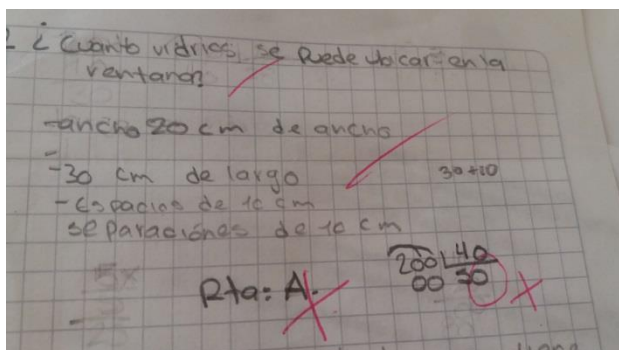 ¿Cuanto vidrios se puede ubicar en la
ventana?
-ancho 20 cm de ancho
-
-30 cm de largo
30+10
-espacios de 10 cm
separaciones de 10 cm
200 40
Rta: A.
00 50